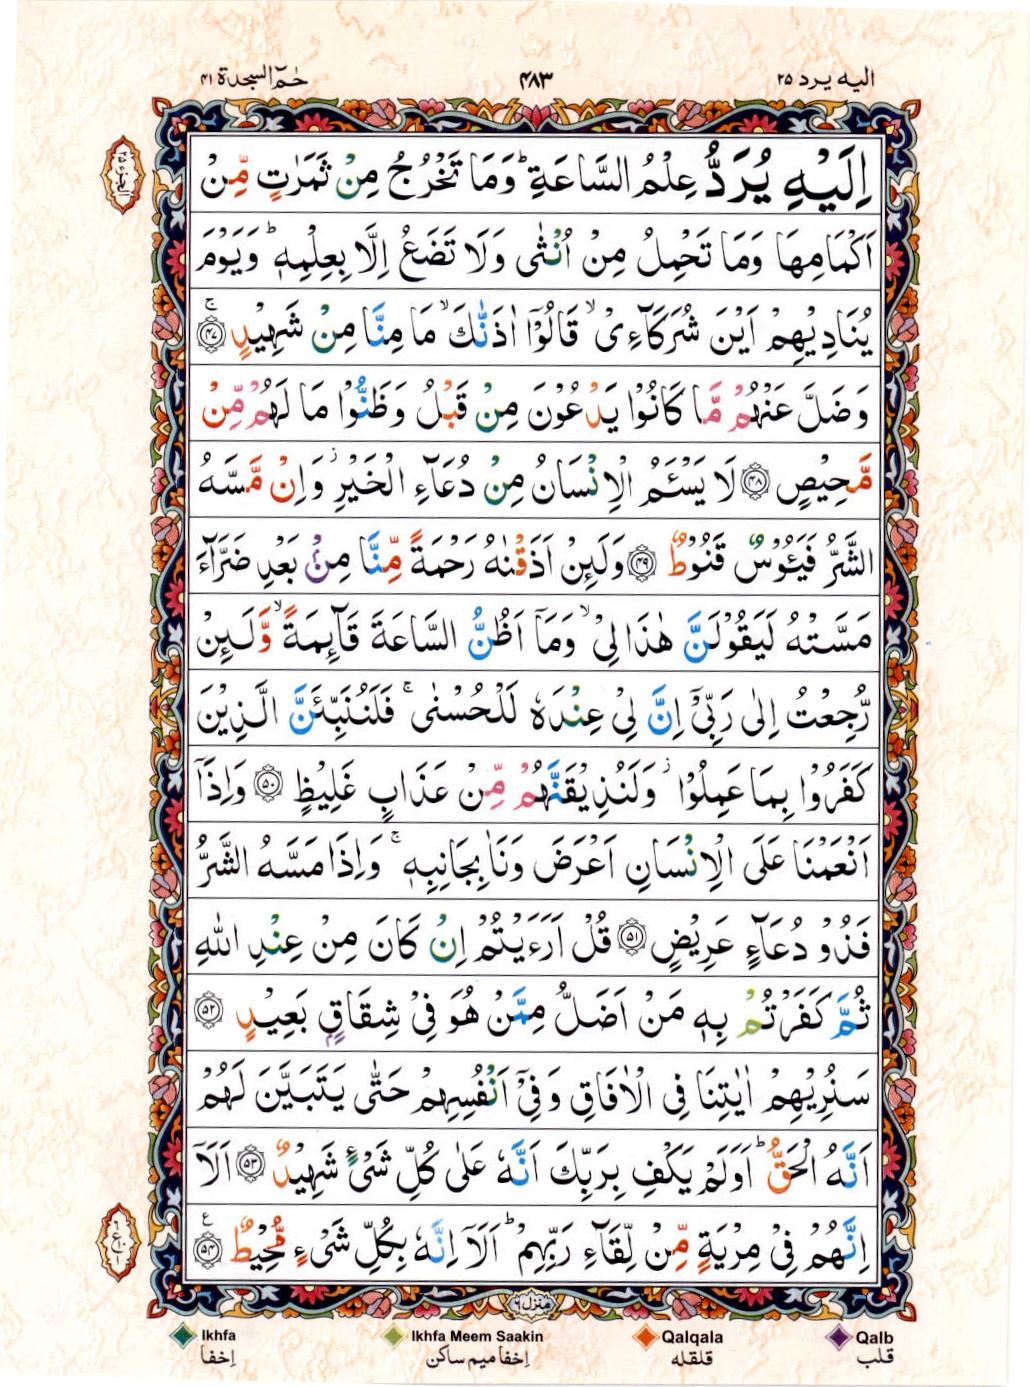 الیه یرد ۲۵
۴۸۳
حٰمٓ السجدة ۴۱
اِلَیْهِ یُرَدُّ عِلْمُ السَّاعَةِ ؕ وَمَا تَخْرُجُ مِنْ ثَمَرٰتٍ مِّنْ
اَكْمَامِهَا وَمَا تَحْمِلُ مِنْ اُنْثٰی وَلَا تَضَعُ اِلَّا بِعِلْمِهٖ ؕ وَیَوْمَ
یُنَادِیْهِمْ اَیْنَ شُرَكَآءِیْ ۙ قَالُوْۤا اٰذَنّٰكَ ۙ مَا مِنَّا مِنْ شَهِیْدٍ ۚ ﴿۴۷﴾
وَضَلَّ عَنْهُمْ مَّا كَانُوْا یَدْعُوْنَ مِنْ قَبْلُ وَظَنُّوْا مَا لَهُمْ مِّنْ
مَّحِیْصٍ ﴿۴۸﴾ لَا یَسْـَٔمُ الْاِنْسَانُ مِنْ دُعَآءِ الْخَیْرِ ؗ وَاِنْ مَّسَّهُ
الشَّرُّ فَیَـُٔوْسٌ قَنُوْطٌ ﴿۴۹﴾ وَلَىِٕنْ اَذَقْنٰهُ رَحْمَةً مِّنَّا مِنْۢ بَعْدِ ضَرَّآءَ
مَسَّتْهُ لَیَقُوْلَنَّ هٰذَا لِیْ ۙ وَمَاۤ اَظُنُّ السَّاعَةَ قَآىِٕمَةً ۙ وَّلَىِٕنْ
رُّجِعْتُ اِلٰی رَبِّیْۤ اِنَّ لِیْ عِنْدَهٗ لَلْحُسْنٰی ۚ فَلَنُنَبِّئَنَّ الَّذِیْنَ
كَفَرُوْا بِمَا عَمِلُوْا ؗ وَلَنُذِیْقَنَّهُمْ مِّنْ عَذَابٍ غَلِیْظٍ ﴿۵۰﴾ وَاِذَاۤ
اَنْعَمْنَا عَلَی الْاِنْسَانِ اَعْرَضَ وَنَاٰ بِجَانِبِهٖ ۚ وَاِذَا مَسَّهُ الشَّرُّ
فَذُوْ دُعَآءٍ عَرِیْضٍ ﴿۵۱﴾ قُلْ اَرَءَیْتُمْ اِنْ كَانَ مِنْ عِنْدِ اللّٰهِ
ثُمَّ كَفَرْتُمْ بِهٖ مَنْ اَضَلُّ مِمَّنْ هُوَ فِیْ شِقَاقٍۭ بَعِیْدٍ ﴿۵۲﴾
سَنُرِیْهِمْ اٰیٰتِنَا فِی الْاٰفَاقِ وَفِیْۤ اَنْفُسِهِمْ حَتّٰی یَتَبَیَّنَ لَهُمْ
اَنَّهُ الْحَقُّ ؕ اَوَلَمْ یَكْفِ بِرَبِّكَ اَنَّهٗ عَلٰی كُلِّ شَیْءٍ شَهِیْدٌ ﴿۵۳﴾ اَلَاۤ
اِنَّهُمْ فِیْ مِرْیَةٍ مِّنْ لِّقَآءِ رَبِّهِمْ ؕ اَلَاۤ اِنَّهٗ بِكُلِّ شَیْءٍ مُّحِیْطٌ ﴿۵۴﴾ ع
منزل ۶
Ikhfa Ikhfa Meem Saakin Qalqala Qalb
اِخفا اِخفا میم ساکن قلقله قلب